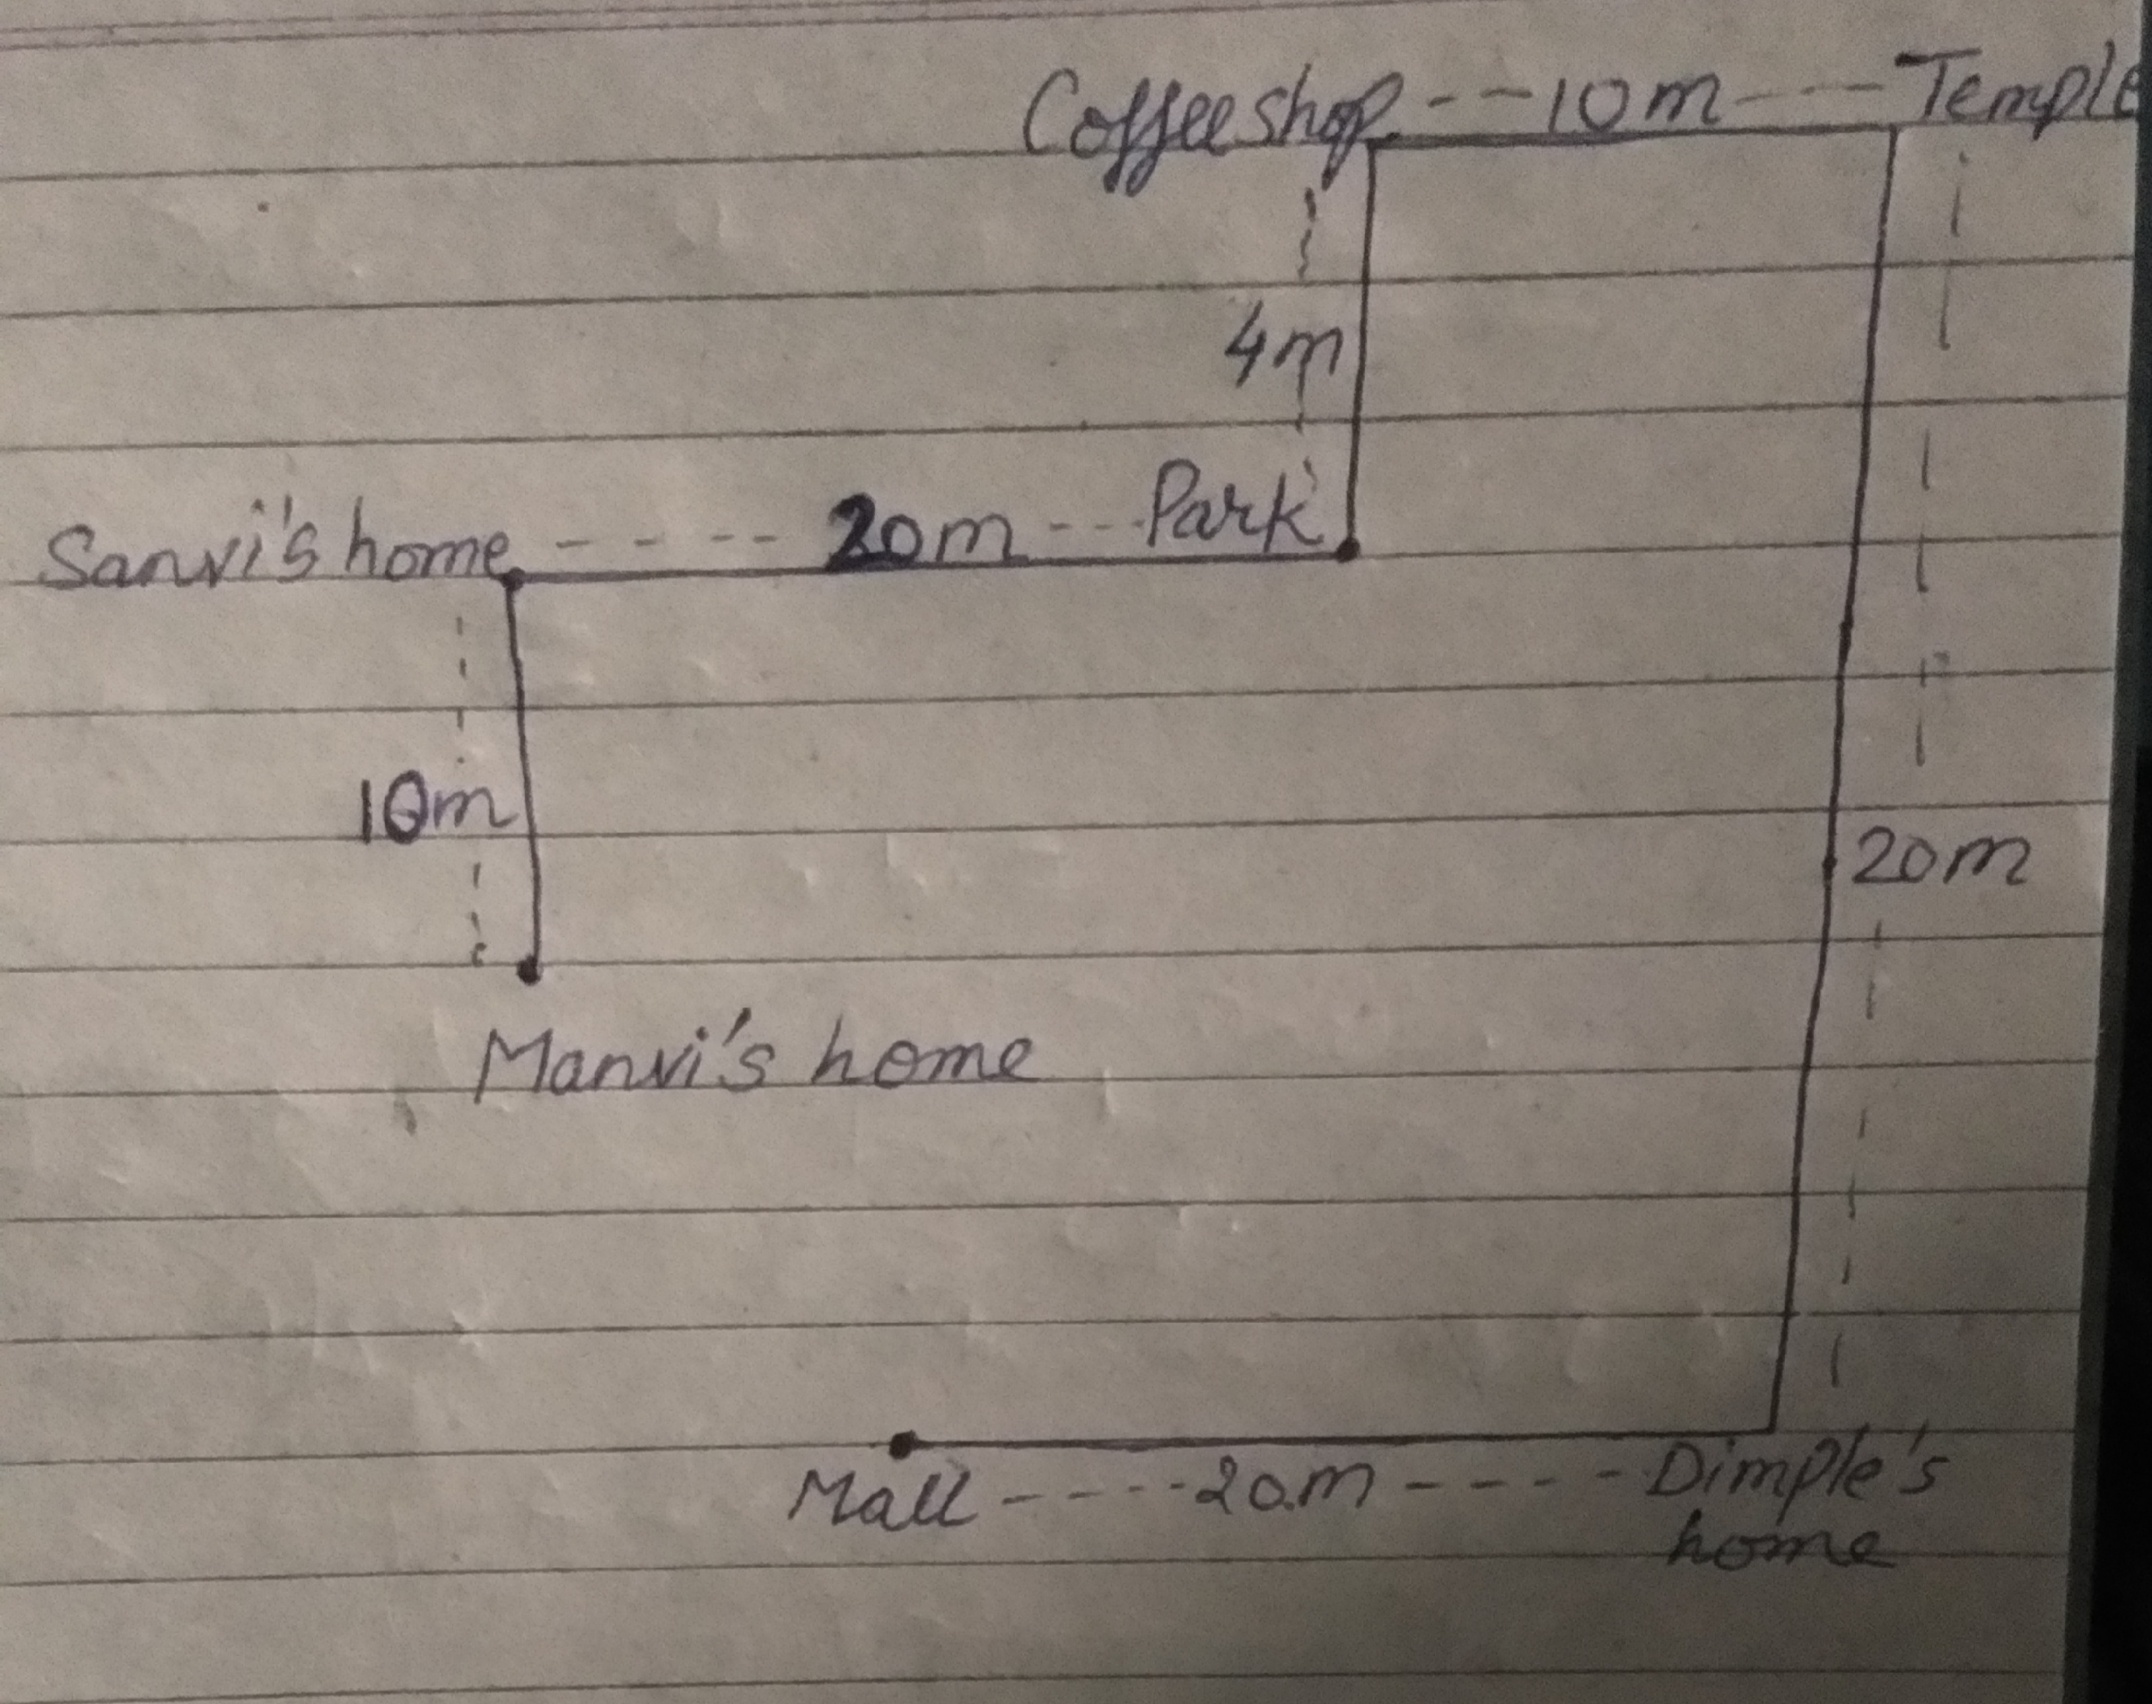 Coffee shop - - 10m - - - Temple
4m
Sanvi's home - - - - 20m - - - Park
10m
20m
Manvi's home
Mall - - - - - 20m - - - - - Dimple's
home